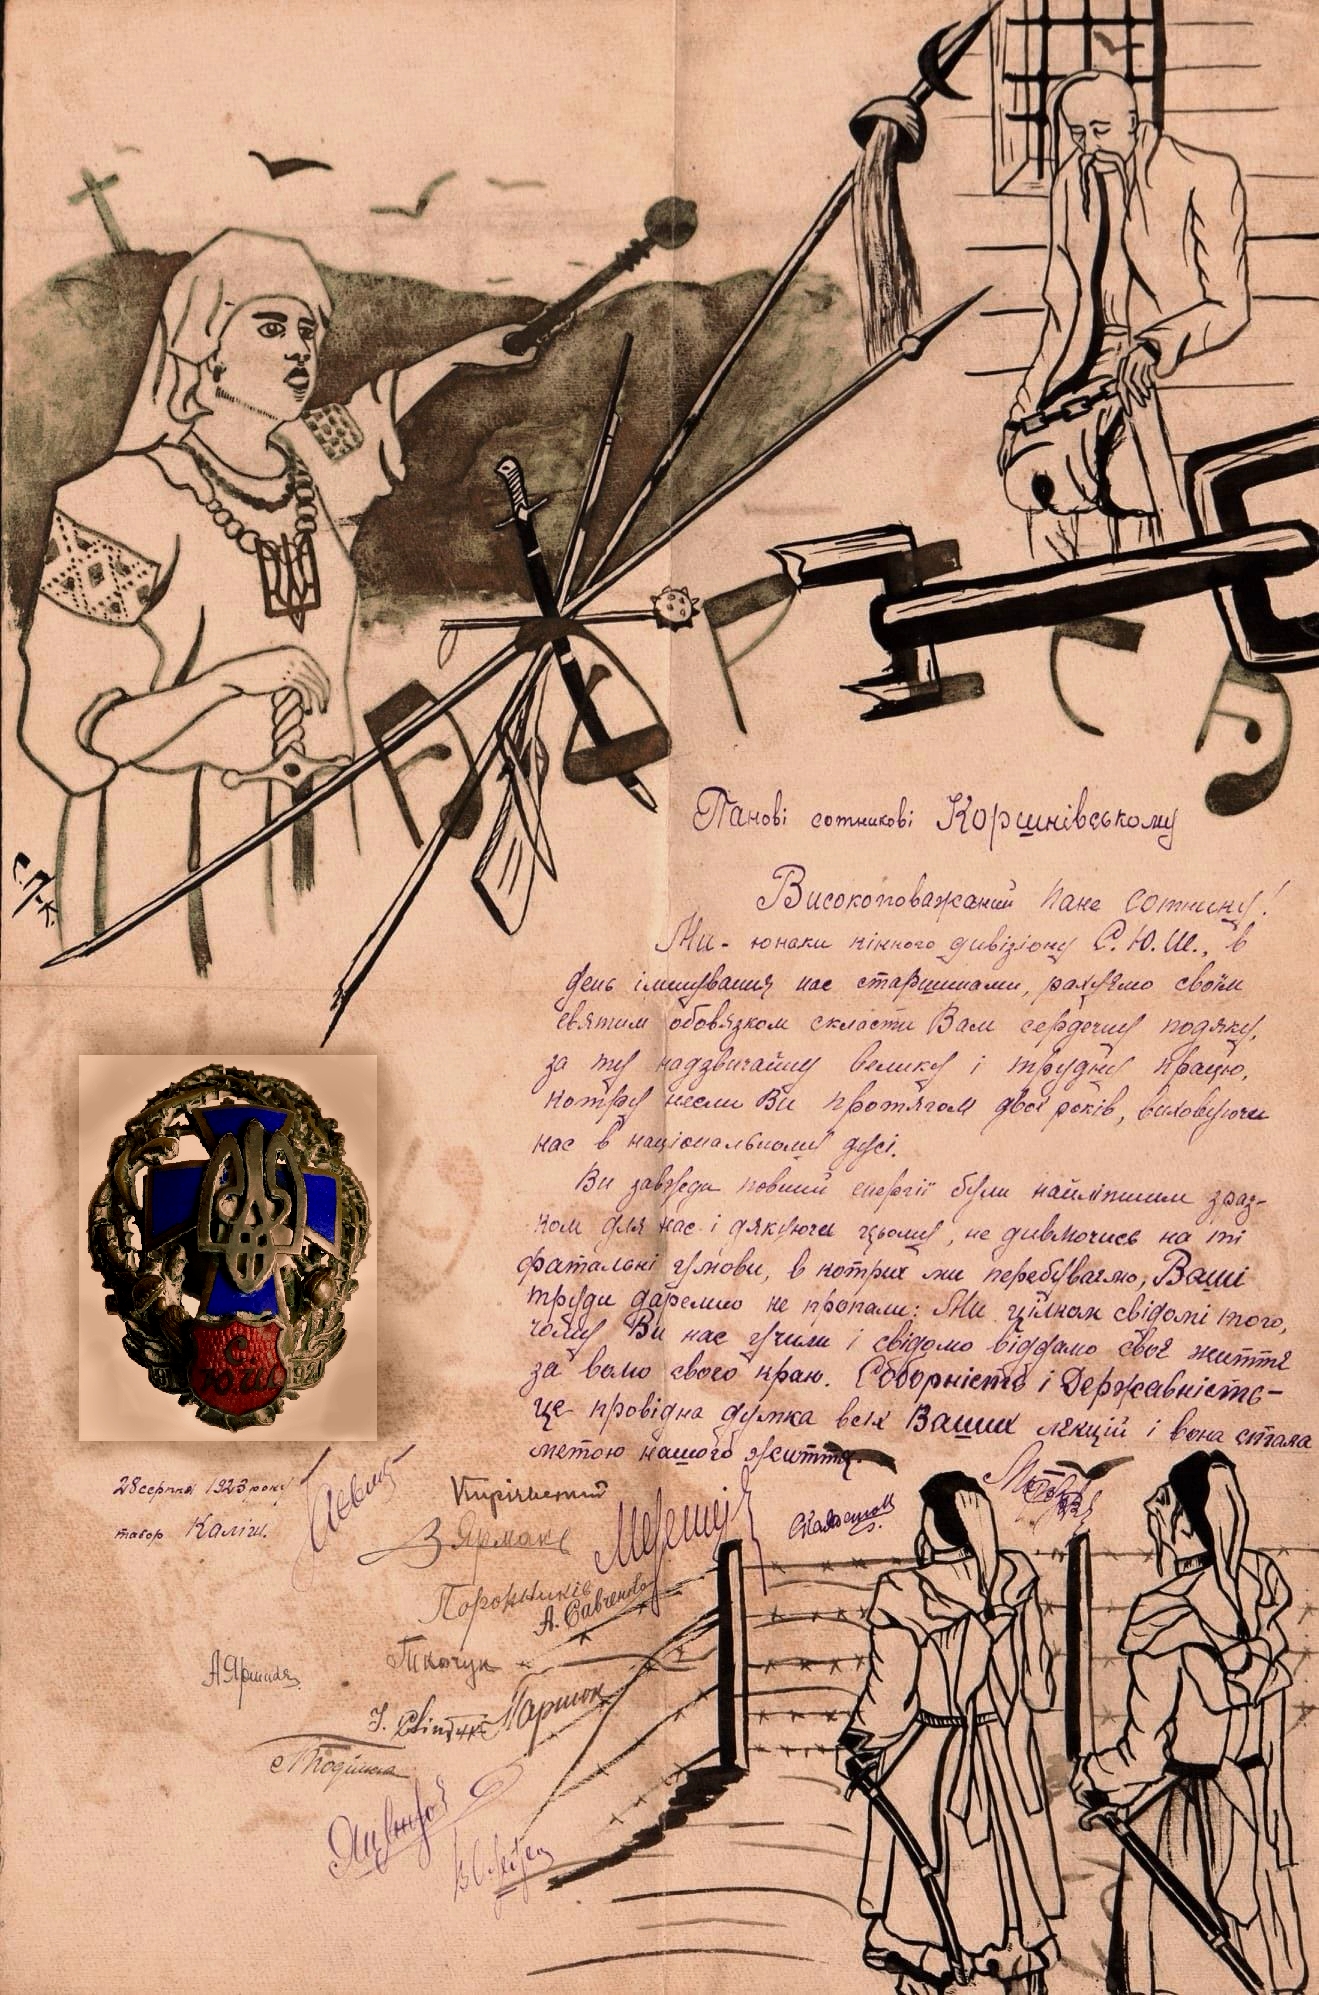 Панові сотникові Коршнівському
Високоповажаний Пане Сотнику!
Ми - юнаки кінного дивізіону С.Ю.Ш., в
день іменування нас старшинами, рахуємо своїм
святим обовязком скласти Вам сердечну подяку,
за ту надзвичайну велику і трудну працю,
котру несли Ви протягом двох років, виховуючи
нас в національному дусі.
Ви завжди повний енергії були найліпшим зраз-
ком для нас і дякуючи цьому, не дивлючись на ті
фатальні умови, в котрих ми перебуваємо, Ваші
труди даремно не пропали: Ми цілком свідомі того,
чому Ви нас учили і свідомо віддамо своє життя
за волю свого краю. Соборність і Державність-
це провідна думка всіх Ваших лекцій і вона стала
метою нашого життя.
28 серпня 1923 року
табор Каліш.
Ярмак
А. Савченко
Ткачук
Паршок
С
Ю Ш